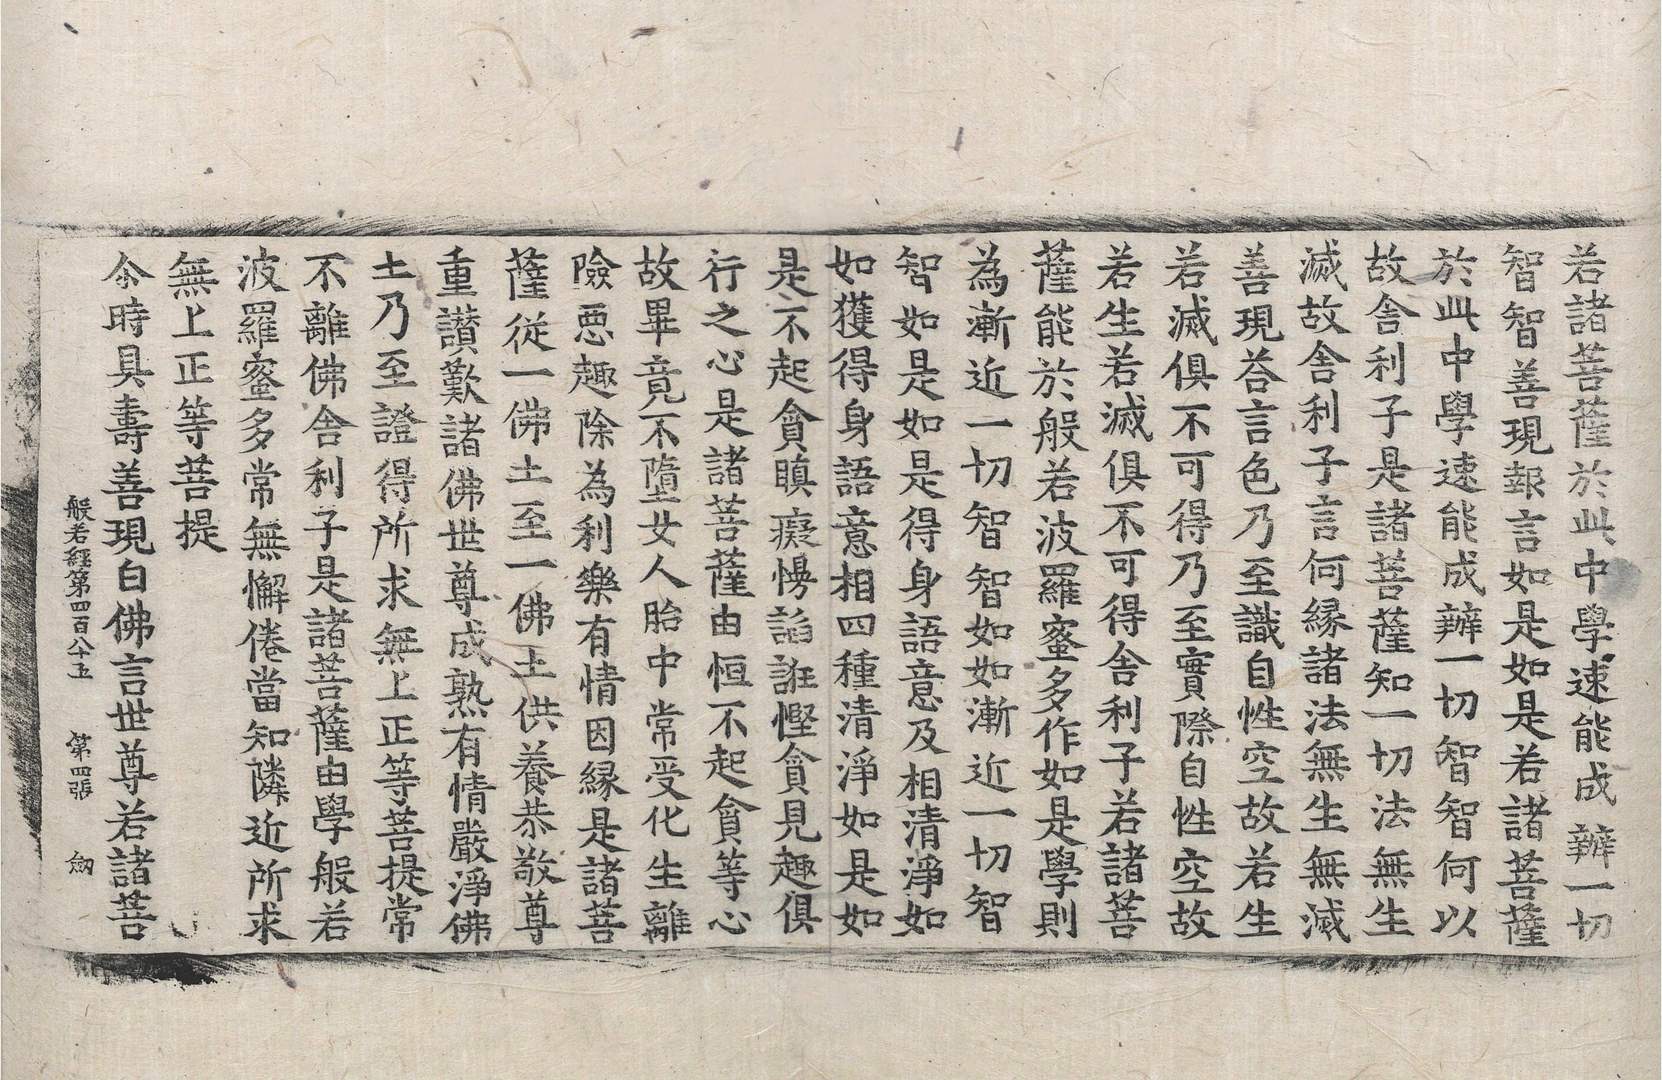 若諸菩薩於此中學速能成辦一切
智智善現報言如是如是若諸菩薩
於此中學速能成辦一切智智何以
故舍利子是諸菩薩知一切法無生
滅故舍利子言何緣諸法無生無滅
善現荅言色乃至識自性空故若生
若滅俱不可得乃至實際自性空故
若生若滅俱不可得舍利子若諸菩
薩能於般若波羅蜜多作如是學則
為漸近一切智智如如漸近一切智
智如是如是得身語意及相清淨如
如獲得身語意相四種清淨如是如
是不起貪瞋癡慢諂誑慳貪見趣俱
行之心是諸菩薩由恒不起貪等心
故畢竟不墮女人胎中常受化生離
險惡趣除為利樂有情因緣是諸菩
薩從一佛土至一佛土供養恭敬尊
重讚歎諸佛世尊成熟有情嚴淨佛
土乃至證得所求無上正等菩提常
不離佛舍利子是諸菩薩由學般若
波羅蜜多常無懈倦當知隣近所求
無上正等菩提
尒時具壽善現白佛言世尊若諸菩
般若經第四百八十五　第四張　劒